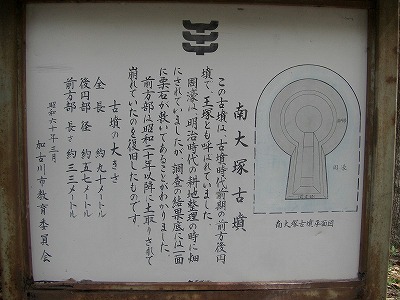 南大塚古墳
この古墳は、古墳時代前期の前方後円
墳で、王塚とも呼ばれていました。
周濠は明治時代の耕地整理の時に畑
にされていましたが、調査の結果底には一面
に栗石が敷いてあることがわかりました。
前方部は昭和二十年以降に土取りされて
崩れていたのを復旧したものです。
古墳の大きさ
全長 約九十メートル
後円部 径 約五七メートル
前方部 長さ 約三三メートル
昭和六十年三月
加古川市教育委員会
周濠
南大塚古墳平面図